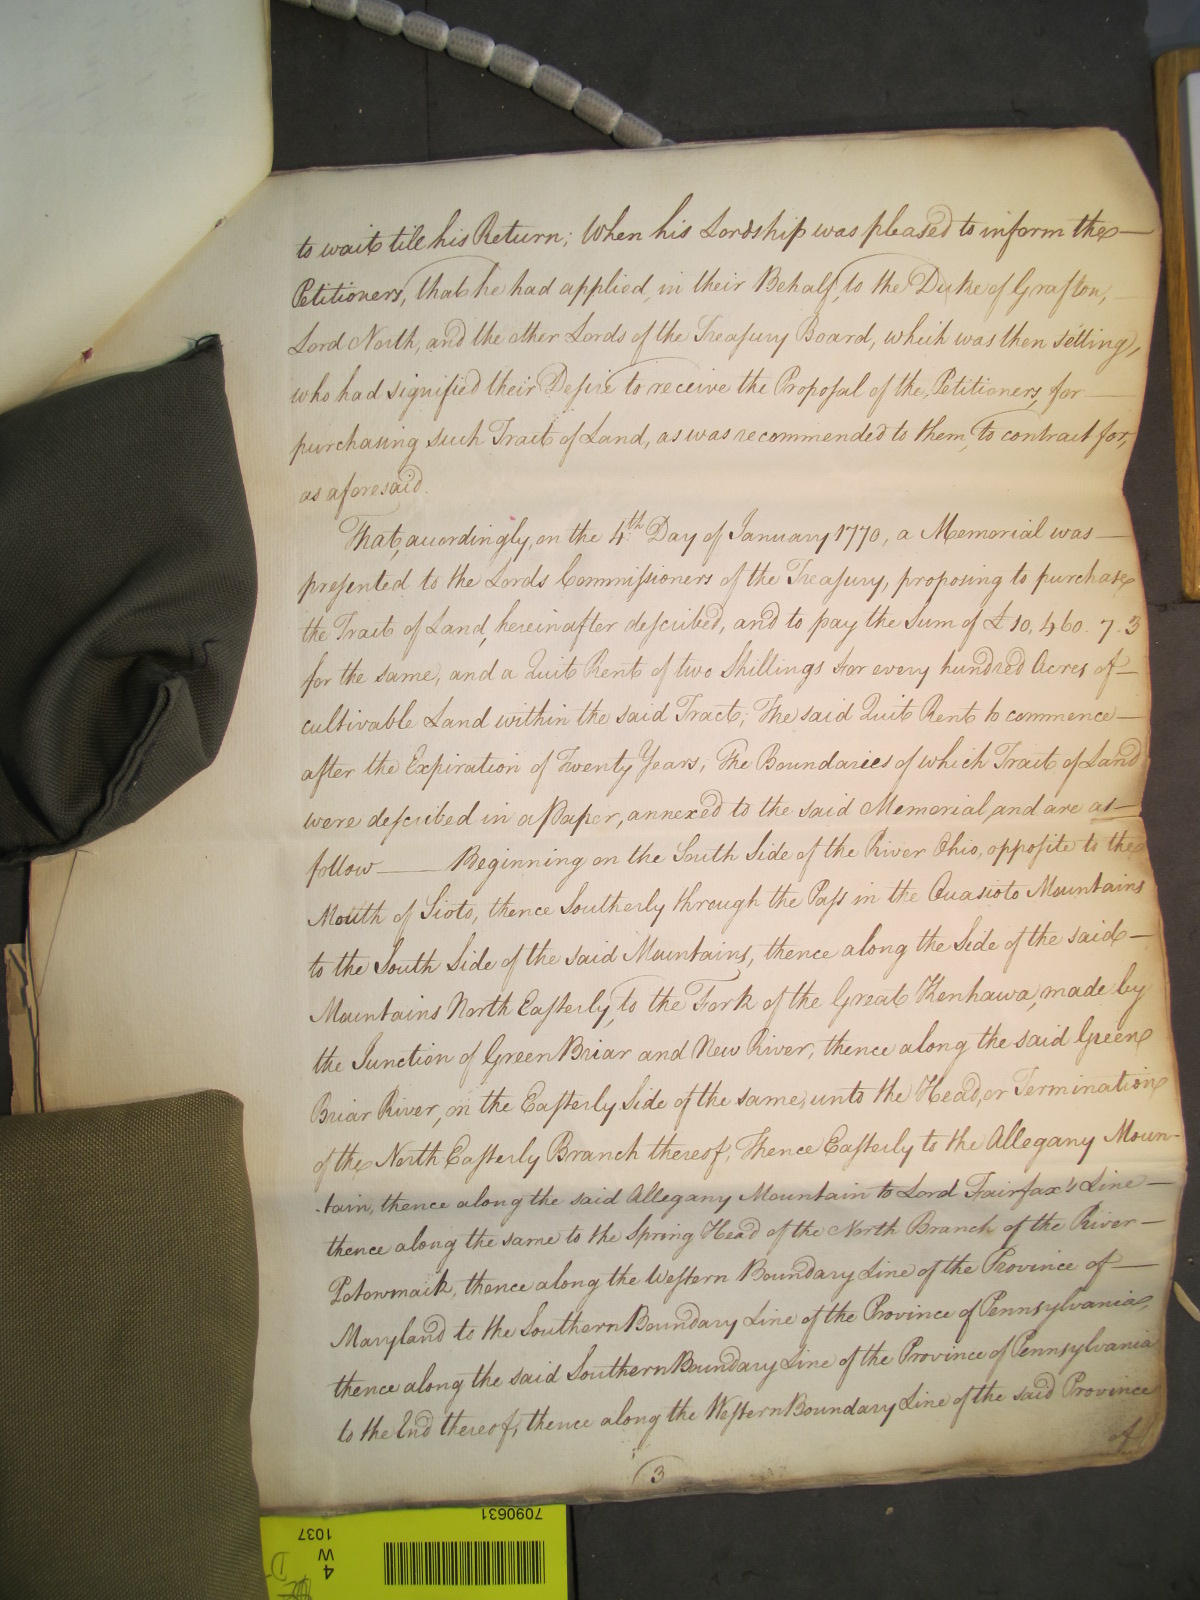 to wait till his Return; When his Lordship was pleased to inform the
Petitioners, that he had applied, in their Behalf, to the Duke of Grafton,
Lord North, and the other Lords of the Treasury Board, which was then sitting,
who had signified their Desire to receive the Proposal of the Petitioners, for
purchasing such Tract of Land, as was recommended to them, to contract for,
as aforesaid.
That, accordingly, on the 4th Day of January 1770, a Memorial was
presented to the Lords Commissioners of the Treasury, proposing to purchase
the Tract of Land, hereinafter described, and to pay the Sum of £10,460. 7. 3
for the same, and a Quit Rent of two Shillings for every hundred Acres of
cultivable Land within the said Tract; The said Quit Rent to commence
after the Expiration of Twenty Years, The Boundaries of which Tract of Land
were described in a Paper, annexed to the said Memorial, and are as
follow — Beginning on the South Side of the River Ohio, opposite to the
Mouth of Sioto, thence Southerly through the Pass in the Ouasioto Mountains
to the South Side of the said Mountains, thence along the Side of the said
Mountains North Easterly, to the Fork of the Great Kenhawa, made by
the Junction of Green Briar and New River, thence along the said Green
Briar River, on the Easterly Side of the same, unto the Head, or Termination
of the North Easterly Branch thereof, Thence Easterly to the Allegany Moun-
tain, thence along the said Allegany Mountain to Lord Fairfax's Line
thence along the same to the Spring Head of the North Branch of the River
Potowmack, thence along the Western Boundary Line of the Province of
Maryland to the Southern Boundary Line of the Province of Pennsylvania,
thence along the said Southern Boundary Line of the Province of Pennsylvania
to the End thereof, thence along the Western Boundary Line of the said Province
of
3
7090631
4
W
1037